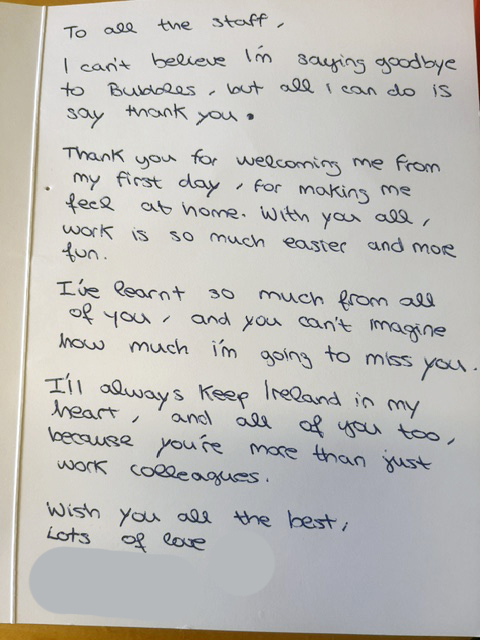 To all the staff,
I can't believe I'm saying goodbye
to Bubbles, but all I can do is
say thank you.
Thank you for welcoming me from
my first day, for making me
feel at home. With you all,
work is so much easier and more
fun.
I've learnt so much from all
of you, and you can't imagine
how much i'm going to miss you.
I'll always keep Ireland in my
heart, and all of you too,
because you're more than just
work colleagues.
Wish you all the best,
Lots of love